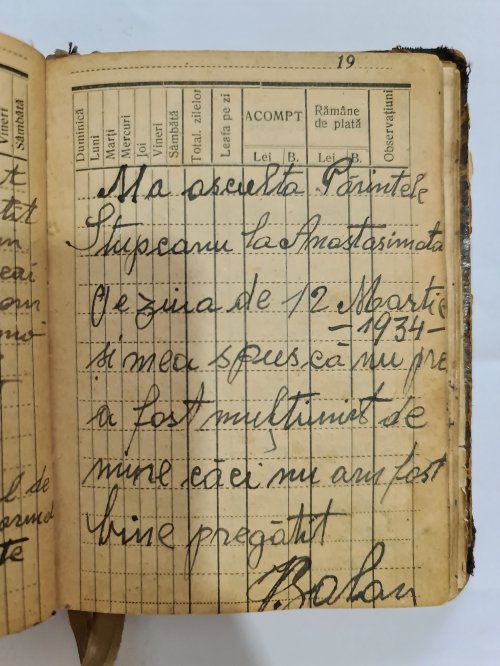 19
Duminică
Luni
Marți
Mercuri
Joi
Vineri
Sâmbătă
Total. zilelor
Leafa pe zi
ACOMPT
Lei B.
Rămâne
de plată
Lei B.
Observațiuni
Vineri
Sâmbătă
M'a asculta Părintele
Stupcanu la Anastasimata
Pe ziua de 12 Martie
-1934-
și mea spus că nu pre
a fost mulțumit de
mine căci nu am fost
bine pregătit
Balan